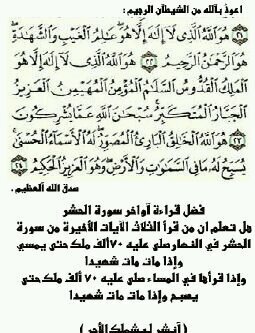 اعوذ بالله من الشيطان الرجيم :
هُوَ اللَّهُ الَّذِي لَا إِلَٰهَ إِلَّا هُوَ عَالِمُ الْغَيْبِ وَالشَّهَادَةِ
هُوَ الرَّحْمَٰنُ الرَّحِيمُ ٢٢ هُوَ اللَّهُ الَّذِي لَا إِلَٰهَ إِلَّا هُوَ
الْمَلِكُ الْقُدُّوسُ السَّلَامُ الْمُؤْمِنُ الْمُهَيْمِنُ الْعَزِيزُ
الْجَبَّارُ الْمُتَكَبِّرُ سُبْحَانَ اللَّهِ عَمَّا يُشْرِكُونَ
٢٣ هُوَ اللَّهُ الْخَالِقُ الْبَارِئُ الْمُصَوِّرُ لَهُ الْأَسْمَاءُ الْحُسْنَىٰ
يُسَبِّحُ لَهُ مَا فِي السَّمَاوَاتِ وَالْأَرْضِ وَهُوَ الْعَزِيزُ الْحَكِيمُ ٢٤
صدق الله العظيم .
فضل قراءة آواخر سورة الحشر
هل تعلم ان من قرأ الثلاث الآيات الأخيرة من سورة
الحشر في النهار صلى عليه ٧٠ ألف ملك حتى يمسي
وإذا مات مات شهيدا
وإذا قرأها في المساء صلى عليه ٧٠ ألف ملك حتى
يصبح وإذا مات مات شهيدا
( آنشر ليشملك الأجر )